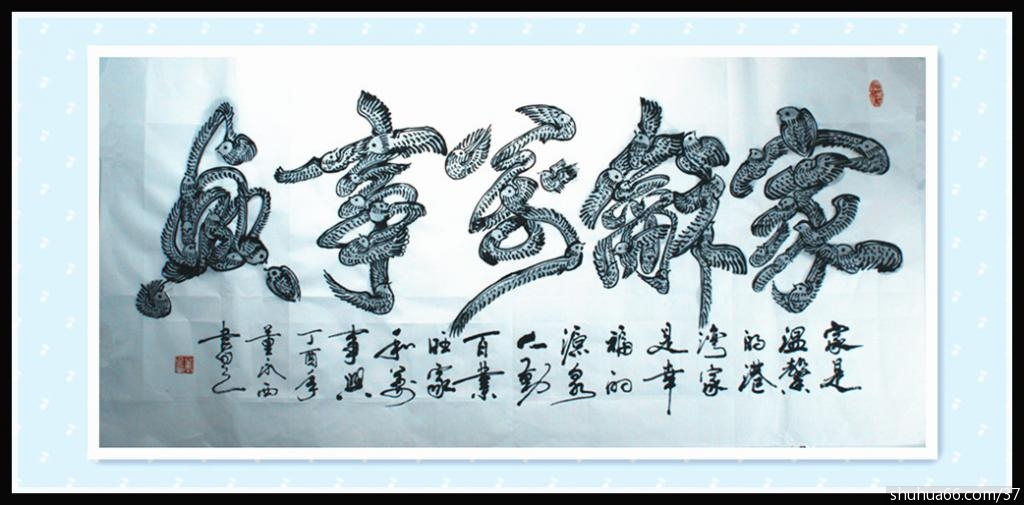 家龢萬事興
家是
温馨
的港
湾家
是幸
福的
源泉
人勤
百業
旺家
和萬
事興
丁酉年
董永西
書
shuhua66.com/37